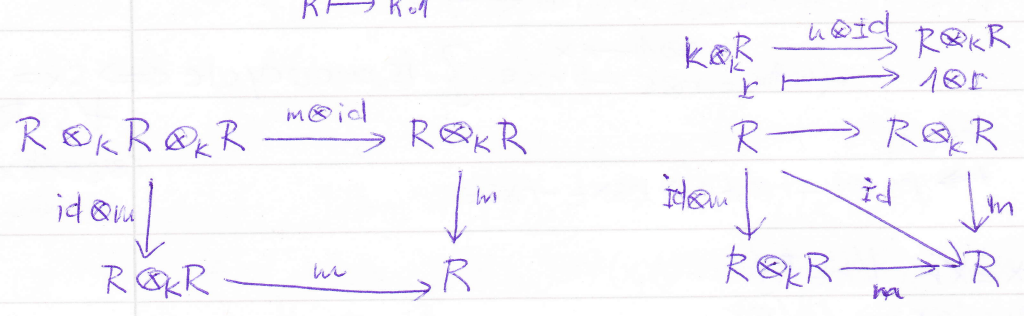 k ↦ k.1
k⊗ₖR —u⊗id→ R⊗ₖR
r ↦ 1⊗r
R ⊗ₖ R ⊗ₖ R —m⊗id→ R⊗ₖR
R → R⊗ₖR
id⊗m ↓ ↓ m
id⊗m ↓ ↘ id ↓ m
R⊗ₖR —m→ R
R⊗ₖR —m→ R